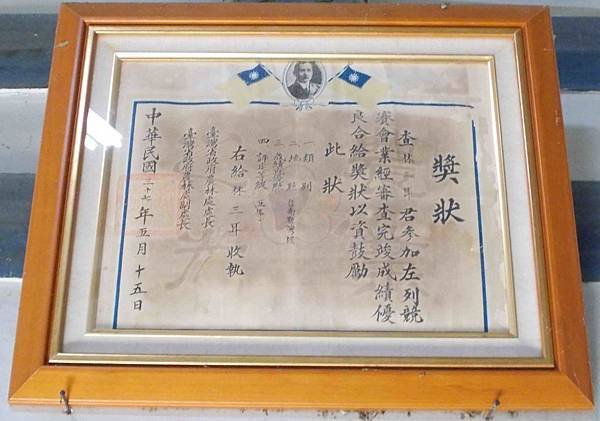 獎狀
查林三耳君參加左列競
賽會業經審查完竣成績優
良合給獎狀以資鼓勵
此狀
一 類別
二 地點
三 成績
四 評
右給林三耳收執
臺灣省政府農林處處長
臺灣省政府農林處副處長
中華民國三十六年五月十五日